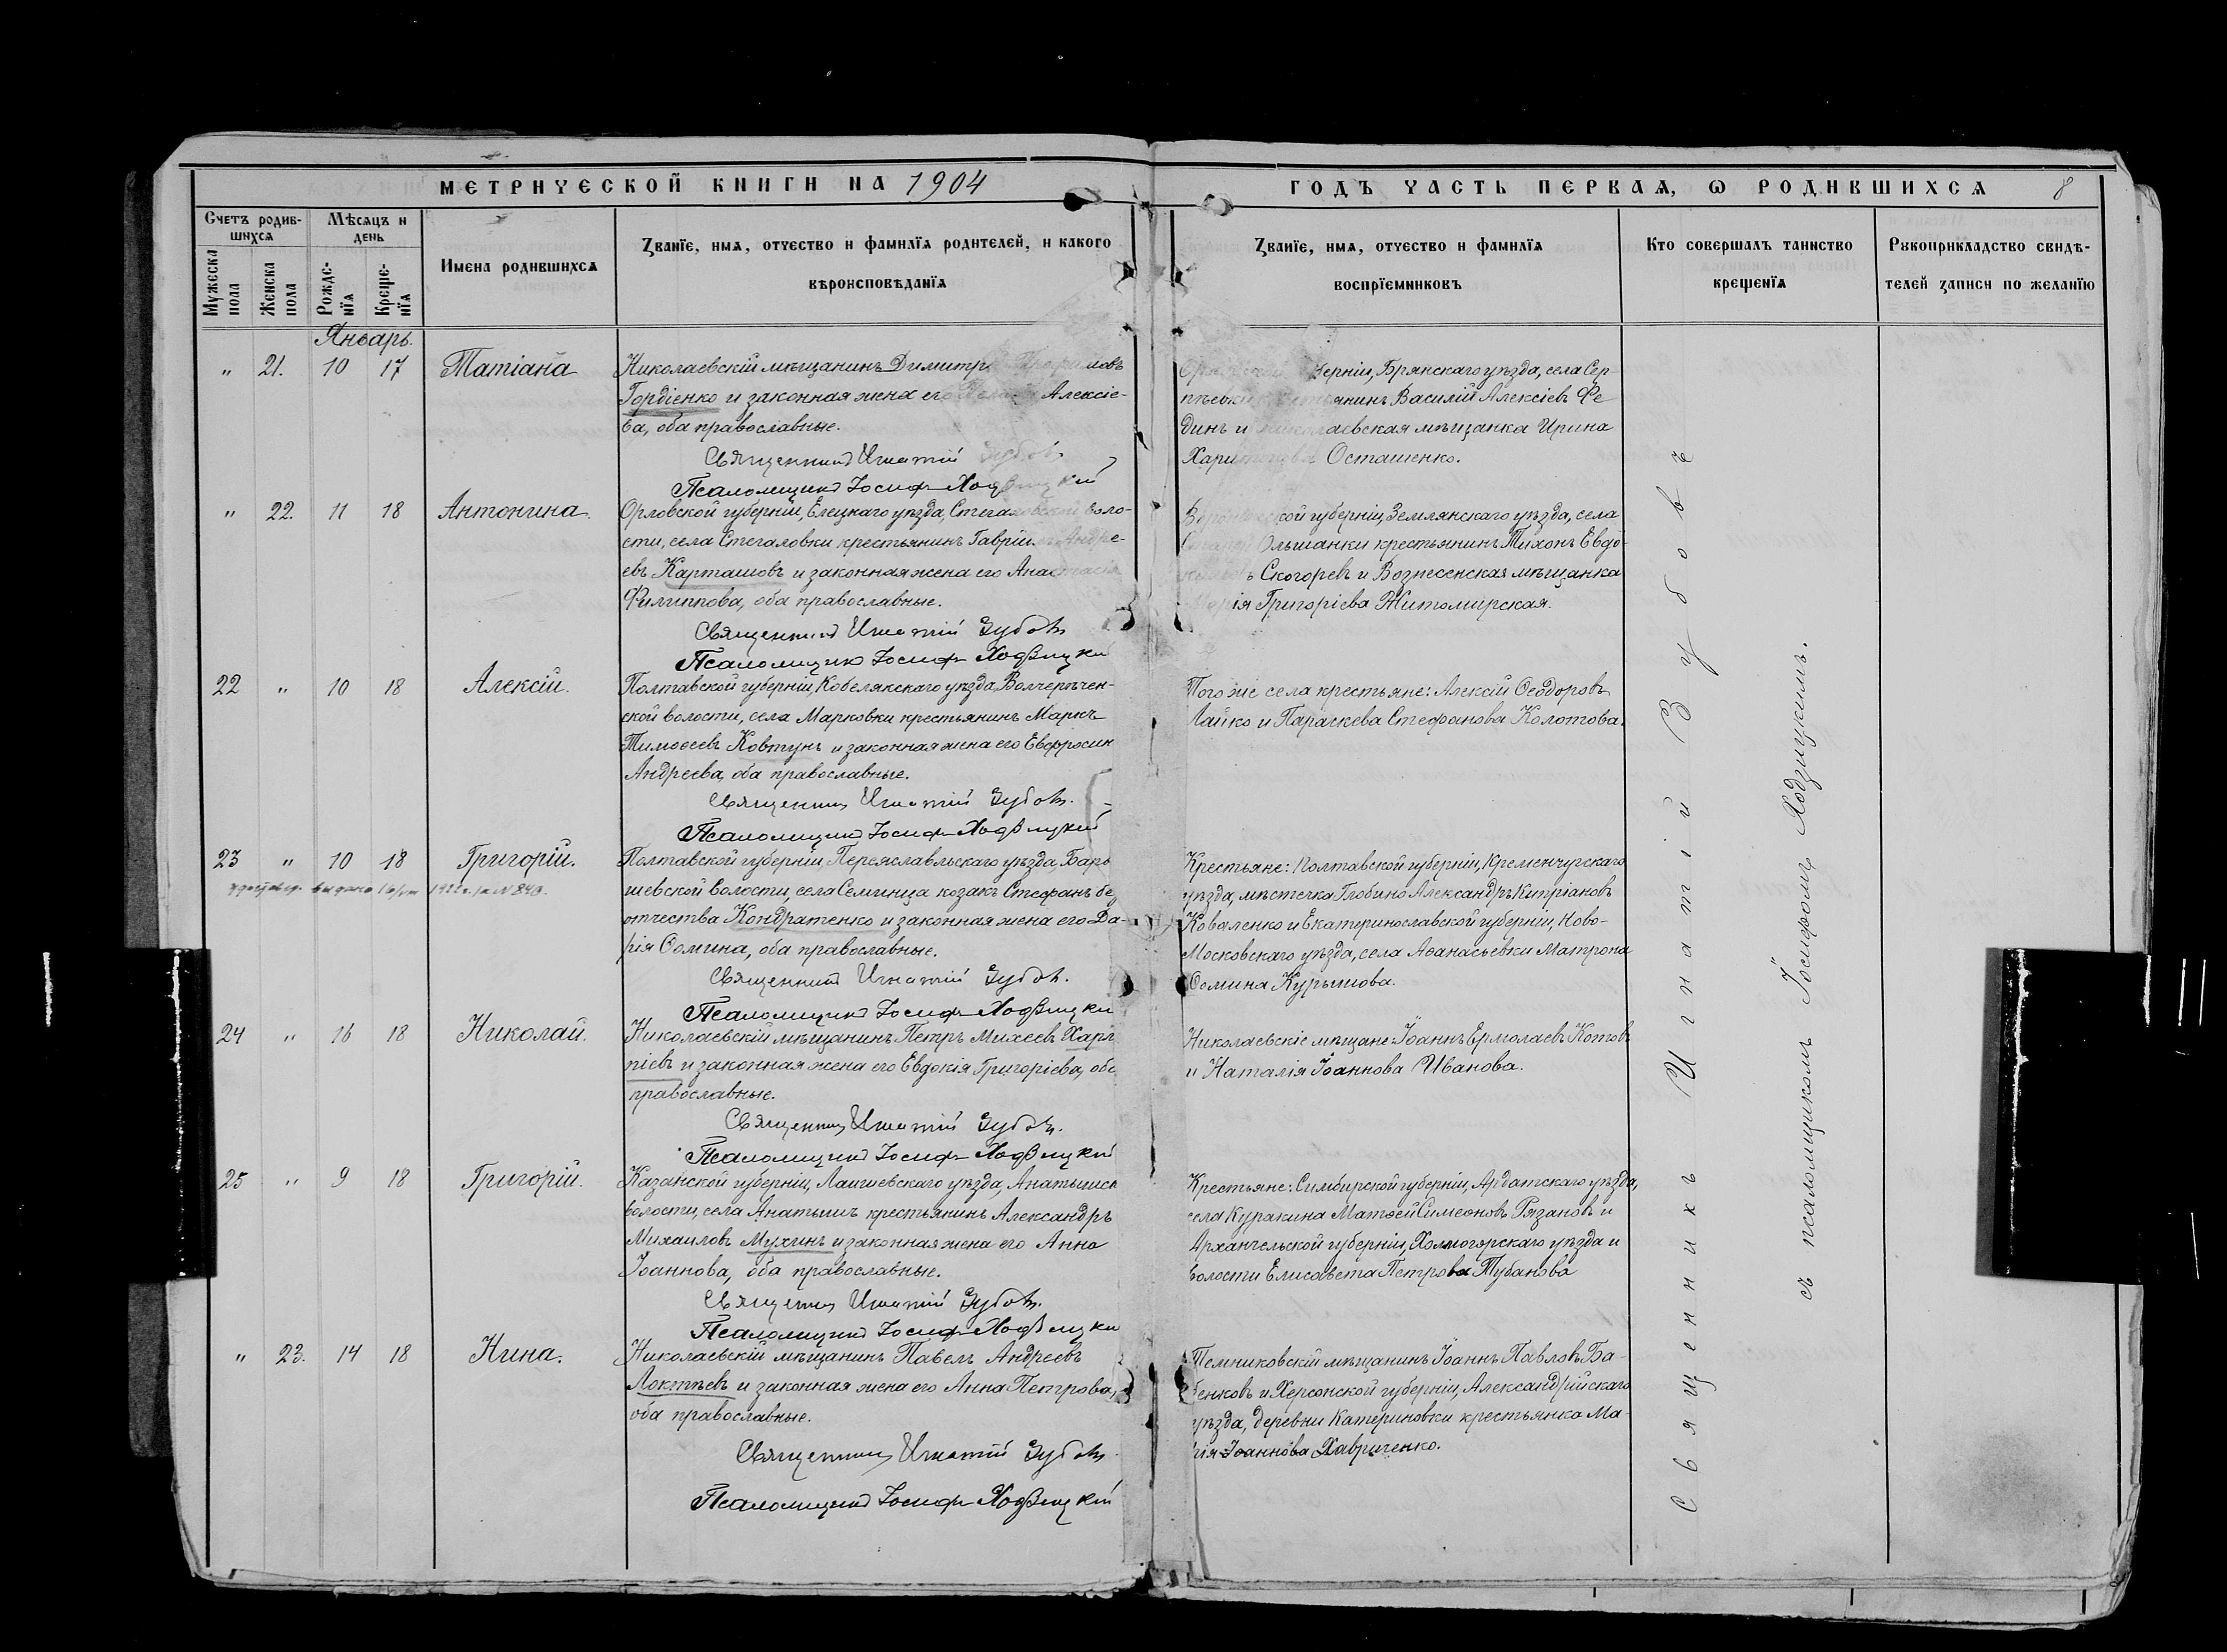 МЕТРИЧЕСКОЙ КНИГИ НА 1904
ГОДЪ ЧАСТЬ ПЕРВАЯ, Ѡ РОДИВШИХСЯ
8
Счетъ родив-
шихся
Мѣсяцъ и
день
Мужеска
пола
Женска
пола
Рожде-
нїя
Креще-
нїя
Имена родившихся
Званїе, имя, отчество и фамилїя родителей, и какого
вѣроисповѣданїя
Званїе, имя, отчество и фамилїя
воспрїемниковъ
Кто совершалъ таинство
крещенїя
Рукоприкладство свидѣ-
телей записи по желанїю
Январь.
" 21. 10 17 Татіана
Николаевскій мѣщанинъ Димитр
Гордіенко и законная жена его Алексіе-
ва, оба православные.
Священникъ Игнатій Зубовъ
Псаломщикъ Іосифъ Ходзицкій
Брянскаго уѣзда, села Сер-
Василій Алексіевъ Фе
динъ и мѣщанка Ирина
Осташенко.
" 22. 11 18 Антонина.
Орловской губерніи, Елецкаго уѣзда, воло-
сти, села Стегаловки крестьянинъ Гавріилъ Андре-
евъ Карташовъ и законная жена его Анастасія
Филиппова, оба православные.
Священникъ Игнатій Зубовъ
Псаломщикъ Іосифъ Ходзицкій
губерніи, Землянскаго уѣзда, села
Ольшанки крестьянинъ Тихонъ Евдо-
Скогоревъ и Вознесенская мѣщанка
Григоріева Житомирская.
22 " 10 18 Алексій.
Полтавской губерніи, Кобелякскаго уѣзда, Волчерѣчен-
ской волости, села Марковки крестьянинъ Маркъ
Тимоѳеевъ Ковтунъ и законная жена его Евфросин
Андреева, оба православные.
Священникъ Игнатій Зубовъ.
Псаломщикъ Іосифъ Ходзицкій
Того же села крестьяне: Алексій Ѳеодоровъ
Лайко и Параскева Стефанова Колотова.
23 " 10 18 Григорій.
Полтавской губерніи, Переяславльскаго уѣзда, Бары
шевской волости, села Семинца козакъ Стефанъ бе
отчества Кондратенко и законная жена его Да-
рія Ѳомина, оба православные.
Священникъ Игнатій Зубовъ.
Псаломщикъ Іосифъ Ходзицкій
Крестьяне: Полтавской губерніи, Кременчугскаго
уѣзда, мѣстечка Глобино Александръ Кипріановъ
Коваленко и Екатеринославской губерніи, Ново-
Московскаго уѣзда, села Аѳанасьевки Матрона
Ѳомина Курышова.
24 " 16 18 Николай.
Николаевскій мѣщанинъ Петръ Михеевъ Харл
піевъ и законная жена его Евдокія Григоріева, оба
православные.
Священникъ Игнатій Зубовъ.
Псаломщикъ Іосифъ Ходзицкій
Николаевскіе мѣщане: Іоаннъ Ермолаевъ Котовъ
и Наталія Іоаннова Иванова.
25 " 9 18 Григорій.
Казанской губерніи, Лаишевскаго уѣзда, Анатышск
волости, села Анатышъ крестьянинъ Александръ
Михаиловъ Мухинъ и законная жена его Анна
Іоаннова, оба православные.
Священникъ Игнатій Зубовъ.
Псаломщикъ Іосифъ Ходзицкій
Крестьяне: Симбирской губерніи, Ардатскаго уѣзда,
села Куракина Матѳей Симеоновъ Рязановъ и
Архангельской губерніи, Холмогорскаго уѣзда и
волости Елисавета Петрова Тубанова
" 23. 14 18 Нина.
Николаевскій мѣщанинъ Павелъ Андреевъ
Локтевъ и законная жена его Анна Петрова,
оба православные.
Священникъ Игнатій Зубовъ
Псаломщикъ Іосифъ Ходзицкій
Темниковскій мѣщанинъ Іоаннъ Павловъ Ба-
бенковъ и Херсонской губерніи, Александрійскаго
уѣзда, деревни Катериновки крестьянка Ма-
рія Іоаннова Хавриченко.
Священникъ Игнатій Зубовъ
съ псаломщикомъ Іосифомъ Ходзицкимъ.